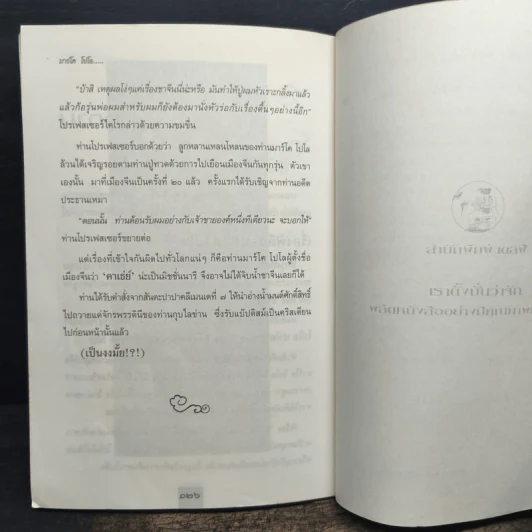 มาร์โค โปโล.....
"บ๊าส์ เหตุผลโง่ๆแค่เรื่องชาจีนนี่น่ะหรือ มันทำให้ปู่ผมหัวเราะกลิ้งมาแล้ว
แล้วก้อรุ่นพ่อผมสำหรับผมก็ยังต้องมานั่งหัวร่อกับเรื่องตื้นๆอย่างนี้อีก"
โปรเฟสเซอร์ไคโรกล่าวด้วยความขมขื่น
ท่านโปรเฟสเซอร์บอกด้วยว่า ลูกหลานเหลนโหลนของท่านมาร์โค โปโล
ล้วนได้เจริญรอยตามท่านปู่ทวดด้วยการไปเยือนเมืองจีนกันทุกรุ่น ตัวเขา
เองนั้น มาที่เมืองจีนเป็นครั้งที่ ๒๐ แล้ว ครั้งแรกได้รับเชิญจากท่านอดีต
ประธานเหมา
"ตอนนั้น ท่านต้อนรับผมอย่างกับเจ้าชายองค์หนึ่งทีเดียวนะ จะบอกให้"
ท่านโปรเฟสเซอร์ขยายต่อ
แต่เรื่องที่เข้าใจกันผิดไปทั่วโลกแน่ๆ ก็คือท่านมาร์โค โปโลผู้ตั้งชื่อ
เมืองจีนว่า 'คาเธ่ย์' น่ะเป็นมิชชั่นนารี จึงอาจไม่ได้จิบน้ำชาจีนเลยก็ได้
ท่านได้รับคำสั่งจากสันตะปาปาคลีเมนเตที่ ๗ ให้นำอ่างน้ำมนต์ศักดิ์สิทธิ์
ไปถวายแด่จักรพรรดินีของท่านกุบไลข่าน ซึ่งรับแบ๊ปติสม์เป็นคริสเตียน
ไปก่อนหน้านั้นแล้ว
(เป็นงงมั้ย!?!)
๑๒๖